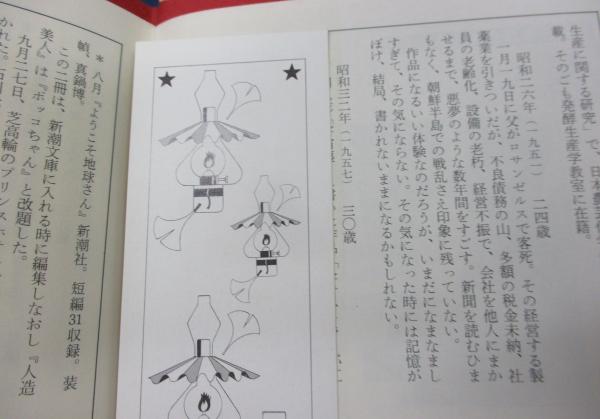 生産に関する研究」で、日本農芸
載。そのごも発酵生産学教室に在籍。
昭和二六年(一九五一) 二四歳
一月一九日に父がロサンゼルスで客死。その経営する製
薬業を引きついだが、不良債務の山、多額の税金未納、社
員の老齢化、設備の老朽、経営不振で、会社を他人にまか
せるまで、悪夢のような数年間をすごす。新聞を読むひま
もなく、朝鮮半島での戦乱さえ印象に残っていない。
作品になるいい体験なのだろうが、いまだになまなまし
すぎて、その気にならない。その気になった時には記憶が
ぼけ、結局、書かれないままになるかもしれない。
昭和三二年(一九五七) 三〇歳
*八月『ようこそ地球さん』新潮社。短編31収録。装
幀、真鍋博。
この二冊は、新潮文庫に入れる時に編集しなおし『人造
美人』は『ボッコちゃん』と改題した。
九月二七日、芝高輪のプリンスホ
かれた。